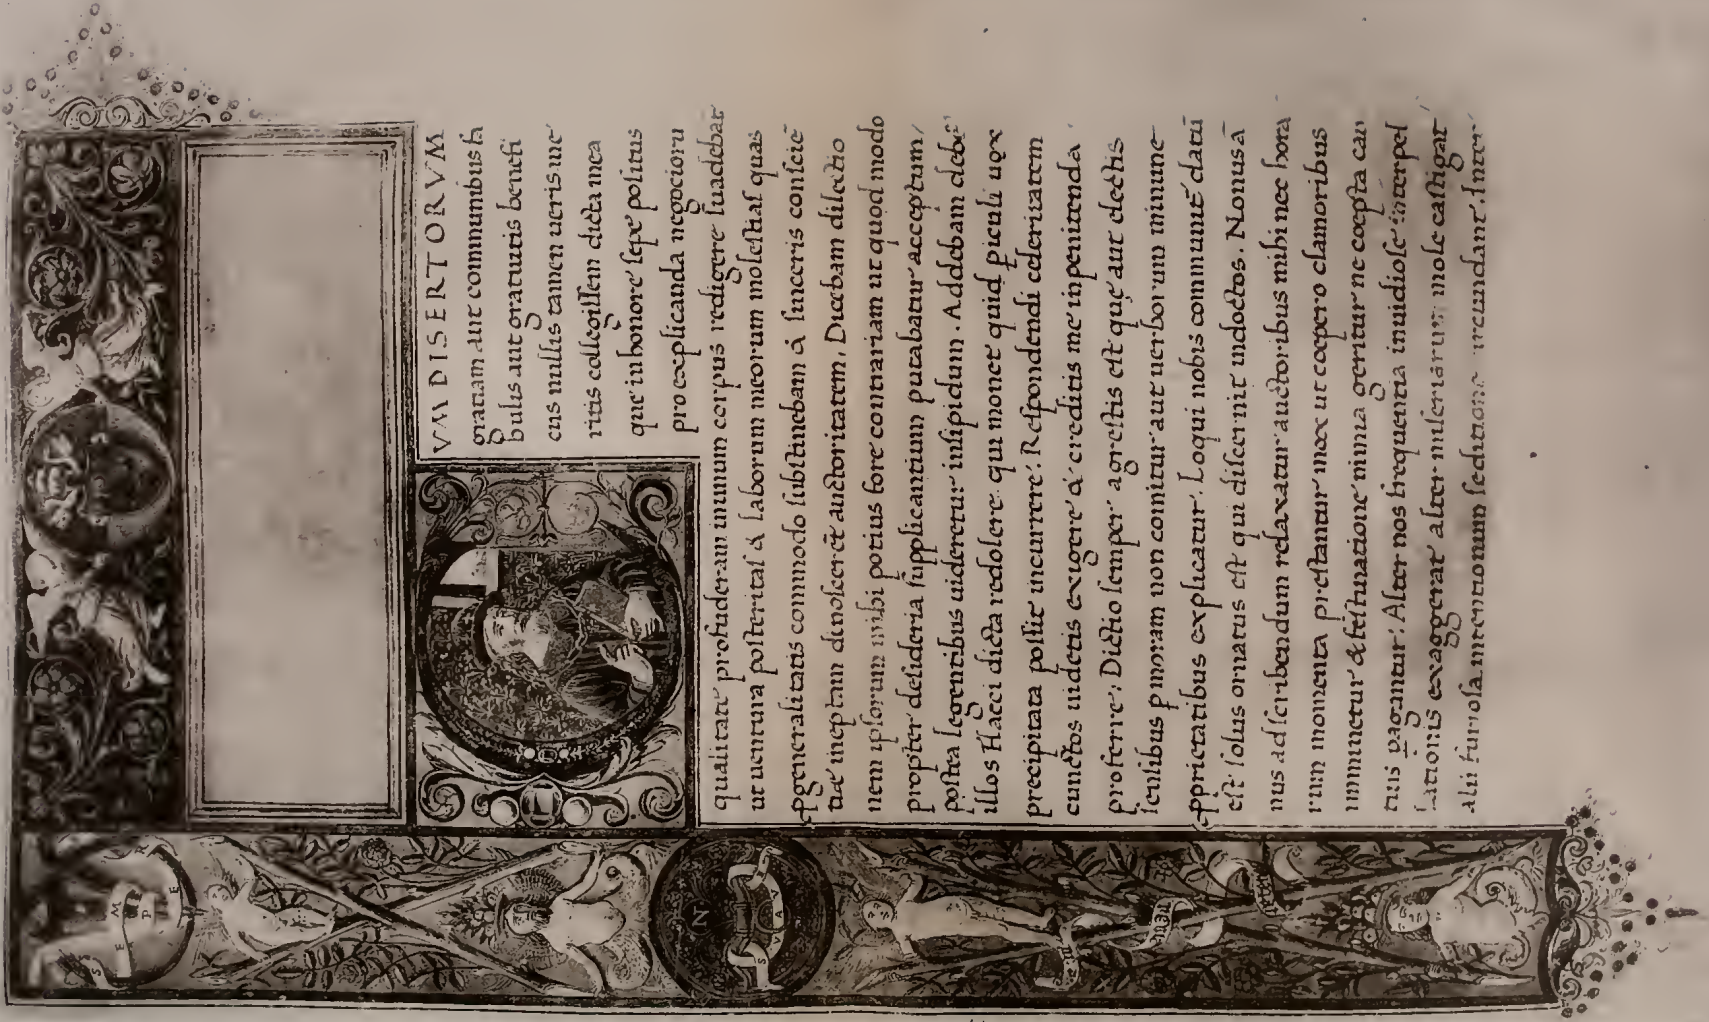 VM DISERTORVM
gratiam aut communibus fa
bulis aut gratuitis benefi
ciis nullis tamen ueris me
ritis collegissem dicta mea
que in honore sepe positus
pro explicanda negocioru
qualitate profuderam inunum corpus redigere suadebat
ut uentura posteritas & laborum meorum molestias quas
pgeneralitatis commodo substinebam & sinceris conscie
tiae ineptam dinoscerēt auctoritatem. Dicebam dilectio
nem ipsorum mihi potius fore contrariam ut quod modo
propter desideria supplicantium putabatur acceptum/
postea legentibus uideretur insipidum. Addebam debē
illos Hacci dicta redolere qui monet quid piculi uox
precipitata possit incurrere. Respondendi celeritatem
cunctos uidetis exigere & creditis me inpenitenda
proferre. Dictio semper agrestis est quę aut electis
sensibus p moram non comitur aut uerborum minime
pprietatibus explicatur. Loqui nobis communit datū
est solus ornatus est qui discernit indoctos. Nonus ā
nus ad scribendum relaxatur auctoribus mihi nec hora
rum momenta prestantur mox ut coepero clamoribus
imminetur & festinatione nimia geritur ne coepta cau
tius pagantur. Alter nos frequentia inuidiose interpel
lationis exaggerat alter miseriarum mole castigat
alii furiosa intentionum seditione
SEMPER
N